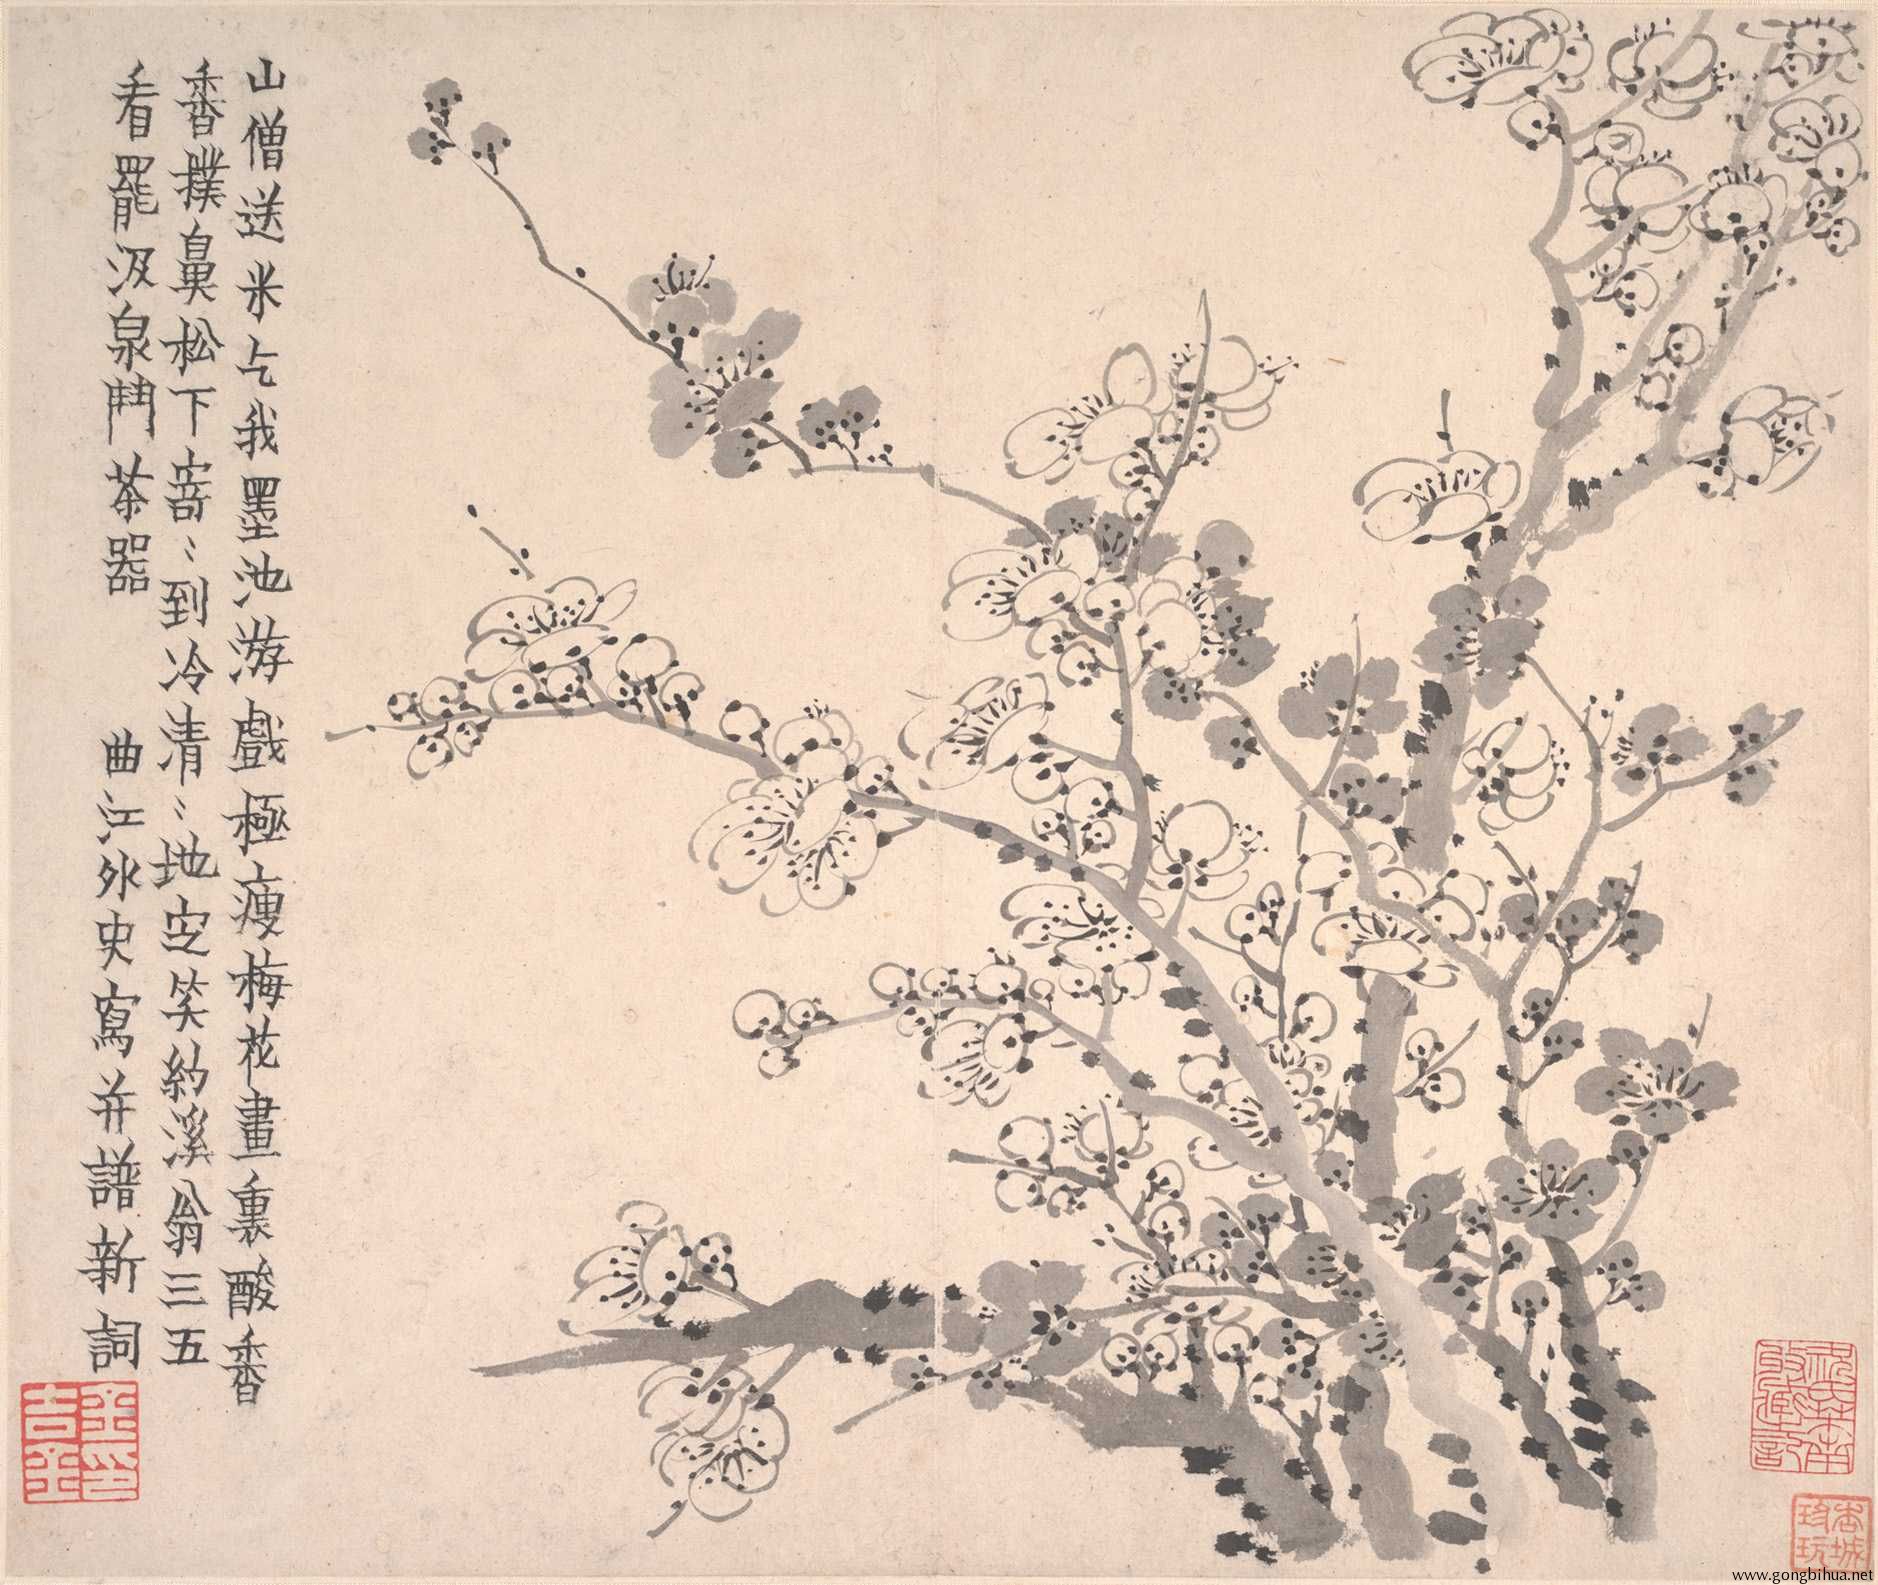 山僧送米乞我墨池游戲極瘦梅花畫裏酸香
香撲鼻松下寄〻到冷清〻地定笑約溪翁三五
看罷汲泉鬥茶器 曲江外史寫并譜新詞
金吉金印
www.gongbihua.net